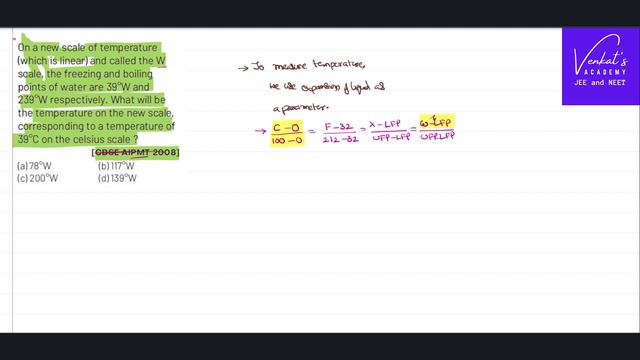 On a new scale of temperature
(which is linear) and called the W
scale, the freezing and boiling
points of water are 39°W and
239°W respectively. What will be
the temperature on the new scale,
corresponding to a temperature of
39°C on the celsius scale ?
[CBSE AIPMT 2008]
(a) 78°W (b) 117°W
(c) 200°W (d) 139°W
→ To measure temperature,
we use expansion of liquid as
a parameter.
→ C-0/100-0 = F-32/212-32 = X-LFP/UFP-LFP = W-LFP/UFP-LFP
Venkat's
ACADEMY
JEE and NEET